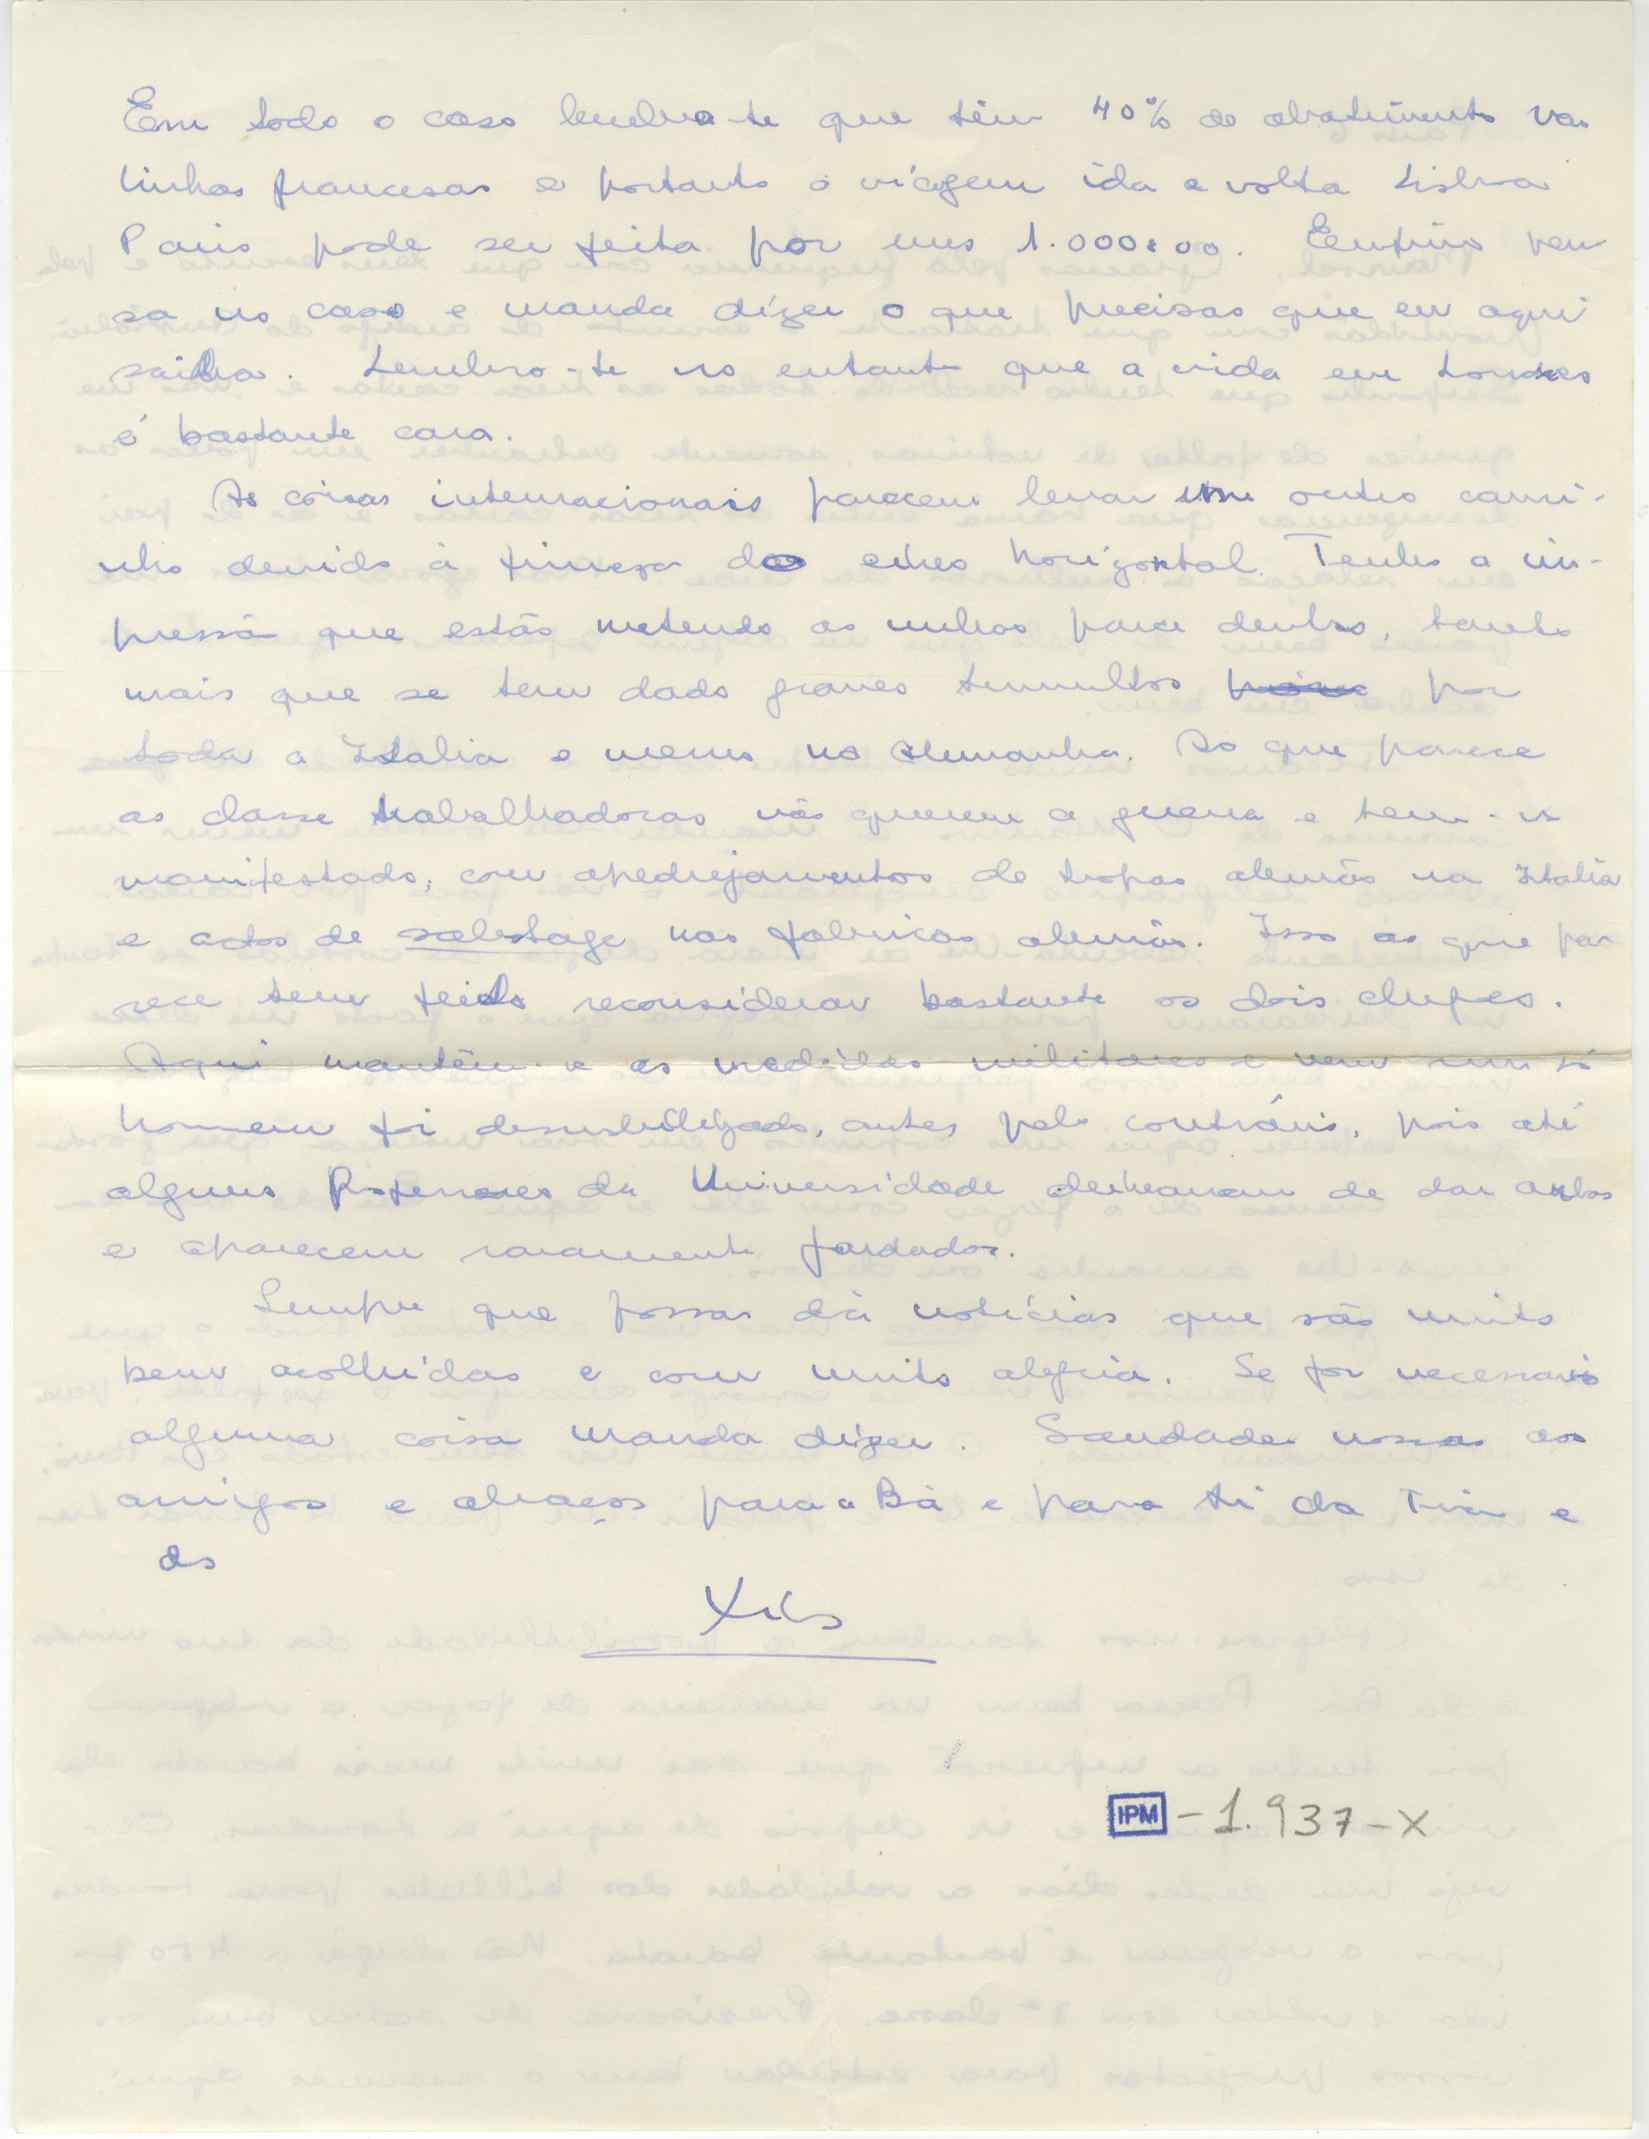 Em todo o caso lembra-te que têm 40% de abatimento nas
linhas francesas e portanto a viagem ida e volta Lisboa
Paris pode ser feita por uns 1.000$00. Emfim pen
sa no caso e manda dizer o que precisas que eu aqui
saiba. Lembro-te no entanto que a vida em Londres
é bastante cara.
As coisas internacionais parecem levar um outro cami-
nho devido à firmeza do eixo horizontal. Tenho a im-
pressão que estão metendo as unhas para dentro, tanto
mais que se tem dado graves tumultos por
toda a Italia e menos na Alemanha. Ao que parece
as classe trabalhadoras não querem a guerra e tem-se
manifestado, com apedrejamentos de tropas alemãs na Italia
e actos de sabotage nas fabricas alemãs. Isso ao que pa
rece tem feito reconsiderar bastante os dois chefes.
Aqui mantêm-se as medidas militares e nem um só
homem foi desmobilizado, antes pelo contrário, pois até
alguns Professores da Universidade deixaram de dar aulas
e aparecem raramente fardados.
Sempre que possas dá notícias que são muito
bem acolhidas e com muita alegria. Se for necessario
alguma coisa manda dizer. Saudades nossas aos
amigos e abraços para a Bá e para ti da e
do
Xico
IPM - 1.937-X